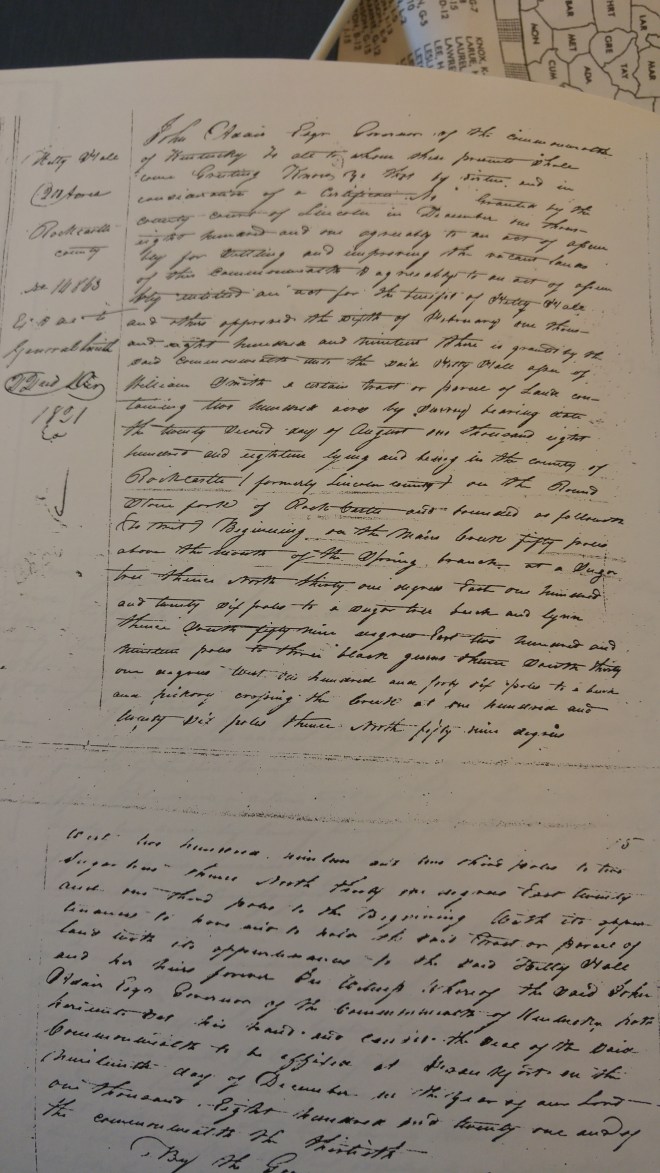 KNOX, K-
LARUE, H
LAUREL
LAWRE
LEE, H
LESL
G-7
-15
O-12
G-5
BAR
HRT
LAR
MON
MET
GRE
MAR
CUM
ADA
TAY
John Adair Esqr Governor of the commonwealth
of Kentucky To all to whom these presents shall
come Greeting Know ye that by virtue and in
consideration of a Certificate No granted by the
county court of Lincoln in December one thou-
eight hundred and one agreeably to an act of assem
bly for settling and improving the vacant lands
of this commonwealth & agreeably to an act of assem
bly entitled an act for the benefit of Hall
and others approved the of February one thou-
and eight hundred and nineteen there is granted by the
said commonwealth unto the said Hall assee of
William Smith a certain tract or parcel of Land con-
taining two hundred acres by Survey bearing date
the twenty second day of August one thousand eight
hundred and eighteen lying and being in the county of
Rockcastle (formerly Lincoln county) on the Round
Stone fork of Rock Castle and bounded as followeth
(to wit) Beginning on the Main Creek fifty poles
above the mouth of the Spring branch at a Sugar
tree thence North thirty one degrees East one hundred
and twenty six poles to a sugar tree beech and lynn
thence South fifty nine degrees East two hundred and
nineteen poles to three black gums thence South thirty
one degrees West hundred and forty six poles to a beech
and hickory crossing the Creek at one hundred and
twenty six poles thence North fifty nine degrees
Hall
200 Acre
Rockcastle
county
No 14863
General Smith
1821
5
West two hundred nineteen and two third poles to two
Sugar trees thence North thirty one degrees East twenty
and one third poles to the Beginning With its appur-
tenances to have and to hold the said Tract or parcel of
land with its appurtenances to the said Hall
and her heirs forever In Witness Whereof the said John
Adair Esqr Governor of the Commonwealth of Kentucky hath
hereunto set his hand and caused the seal of the said
Commonwealth to be affixed at Frankfort on the
nineteenth day of December in the year of our Lord
one thousand Eight hundred and twenty one and of
the commonwealth the thirtieth
By the Gov